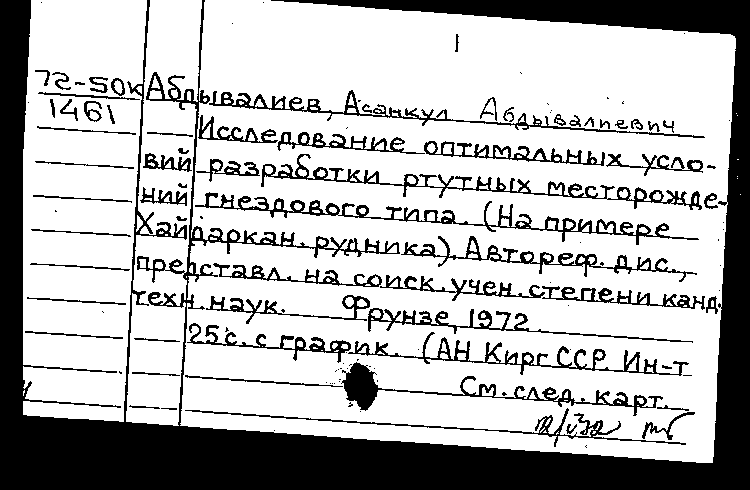 1
72-50к Абдывалиев, Асанкул Абдывалиевич
1461
Исследование оптимальных усло-
вий разработки ртутных месторожде-
ний гнездового типа. (На примере
Хайдаркан. рудника). Автореф. дис.,
представл. на соиск. учен. степени канд.
техн. наук. Фрунзе, 1972.
25 с. с график. (АН Кирг ССР. Ин-т
См. след. карт.